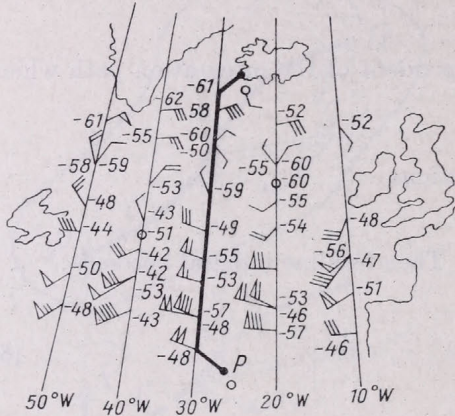 -61
-62
58
-52
-52
-61
-55
-60
-50
-58
-59
-55
-60
-60
-53
-59
-48
-43
-55
-48
-44
-51
-49
-54
-42
-55
-56
-47
-50
-42
-53
-53
-53
-51
-48
-43
-57
-46
-48
-57
-46
-48
P
50°W
40°W
30°W
20°W
10°W